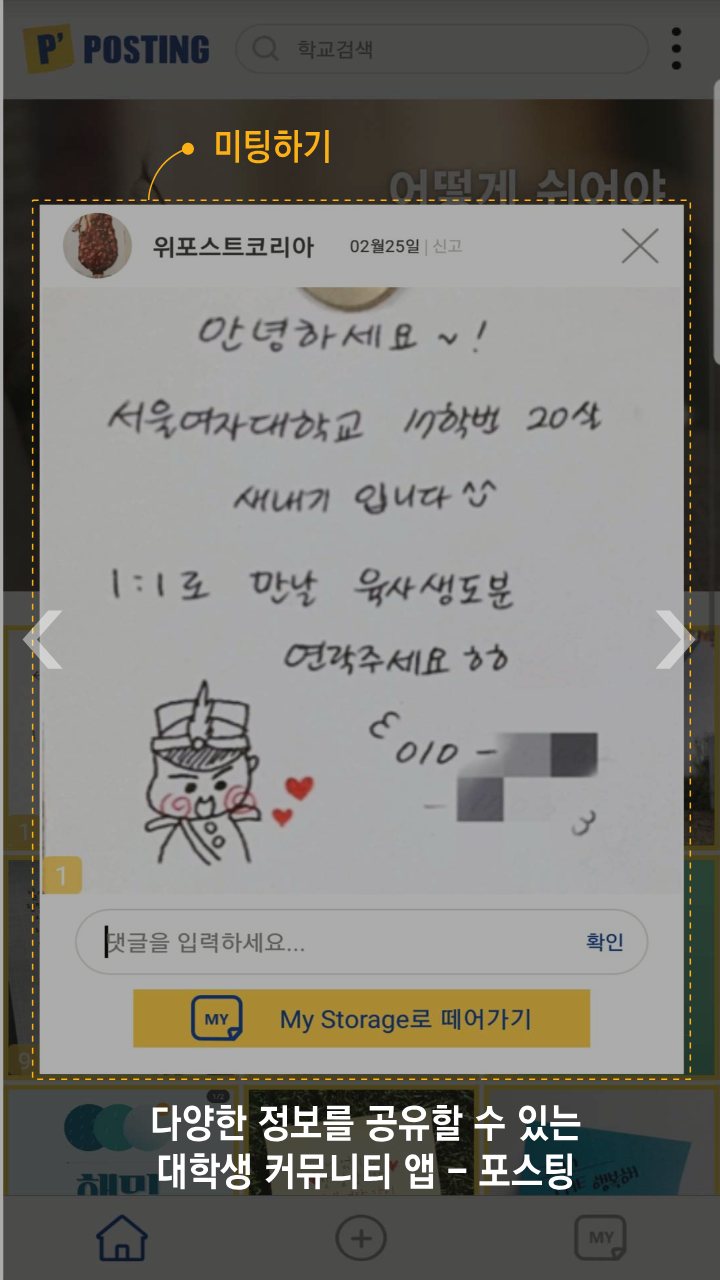 P' POSTING
학교검색
미팅하기
어떻게 쉬어야
위포스트코리아 02월25일 | 신고
안녕하세요 ~!
서울여자대학교 17학번 20살
새내기 입니다 ^^
1:1로 만날 육사생도분
연락주세요 ㅎㅎ
010 -
-
1
1
댓글을 입력하세요...
확인
MY My Storage로 떼어가기
9
1/2
다양한 정보를 공유할 수 있는
대학생 커뮤니티 앱 – 포스팅
행복해
MY